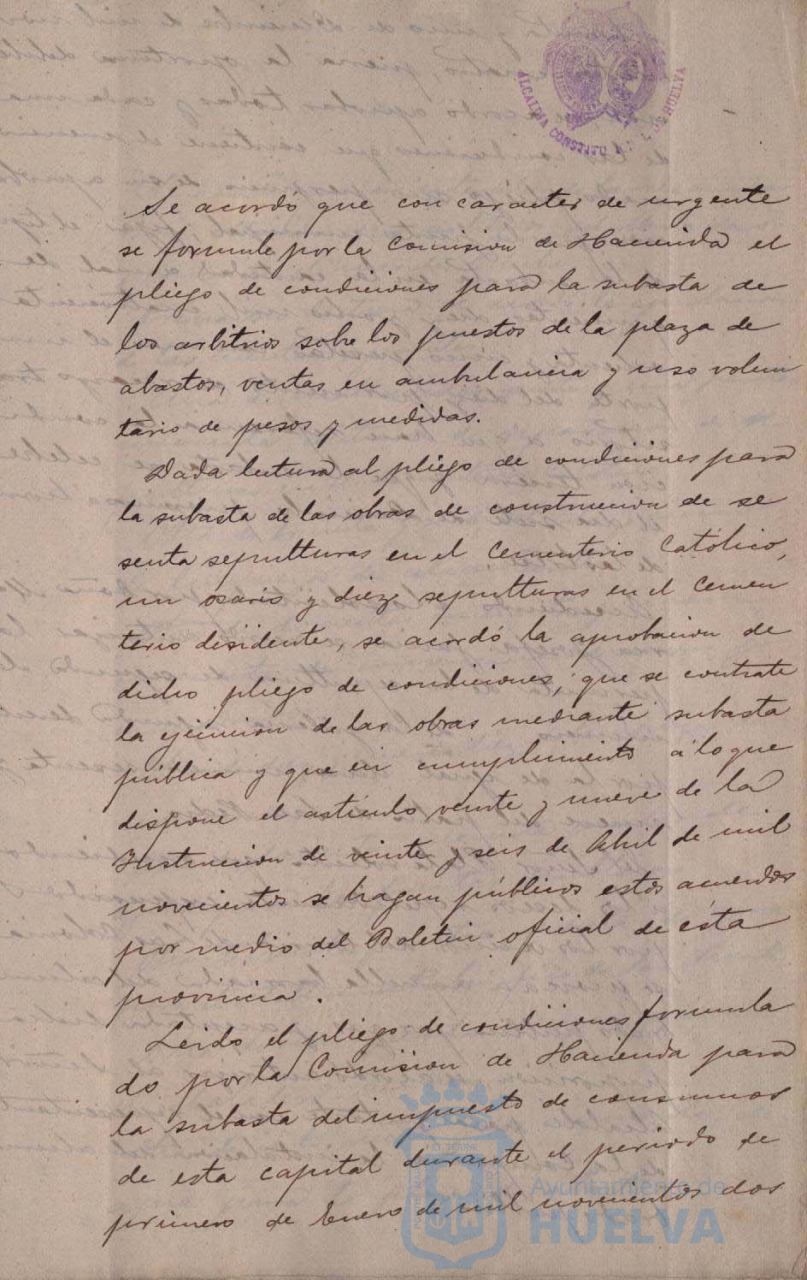 ALCALDIA CONSTITU DE HUELVA
Se acordó que con caracter de urgente
se formule por la Comision de Hacienda el
pliego de condiciones para la subasta de
los arbitrios sobre los puestos de la plaza de
abastos, ventas en ambulancia y uso volun
tario de pesos y medidas.
Dada lectura al pliego de condiciones para
la subasta de las obras de construccion de se
senta sepulturas en el Cementerio Católico,
un osario y diez sepulturas en el Cemen
terio disidente, se acordó la aprobacion de
dicho pliego de condiciones, que se contrate
la ejecucion de las obras mediante subasta
pública y que en cumplimiento á lo que
dispone el articulo veinte y nueve de la
Instruccion de veinte y seis de Abril de mil
novecientos se hagan públicos estos acuerdos
por medio del Boletin oficial de ésta
provincia.
Leido el pliego de condiciones formula
do por la Comision de Hacienda para
la subasta del impuesto de consumos
de esta capital durante el periodo de
primero de Enero de mil novecientos dos
Ayuntamiento de
HUELVA